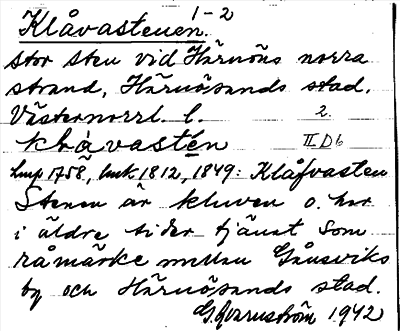 1-2
Klåvastenen.
stor sten vid Härnöns norra
strand, Härnösands stad.
Västernorrl. l. 2.
klåvastén II D b
Lmp 1758, lmk 1812, 1849: Klåfvasten
Stenen är kluven o. har
i äldre tider tjänat som
råmärke mellan Gånsviks
by och Härnösands stad.
G. Qvarnström 1942